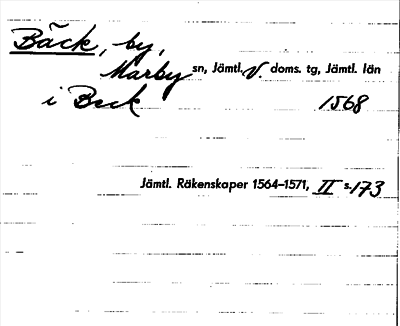 Bäck, by,
Marby sn, Jämtl. V. doms. tg, Jämtl. län
i Beck 1568
Jämtl. Räkenskaper 1564–1571, II s. 173